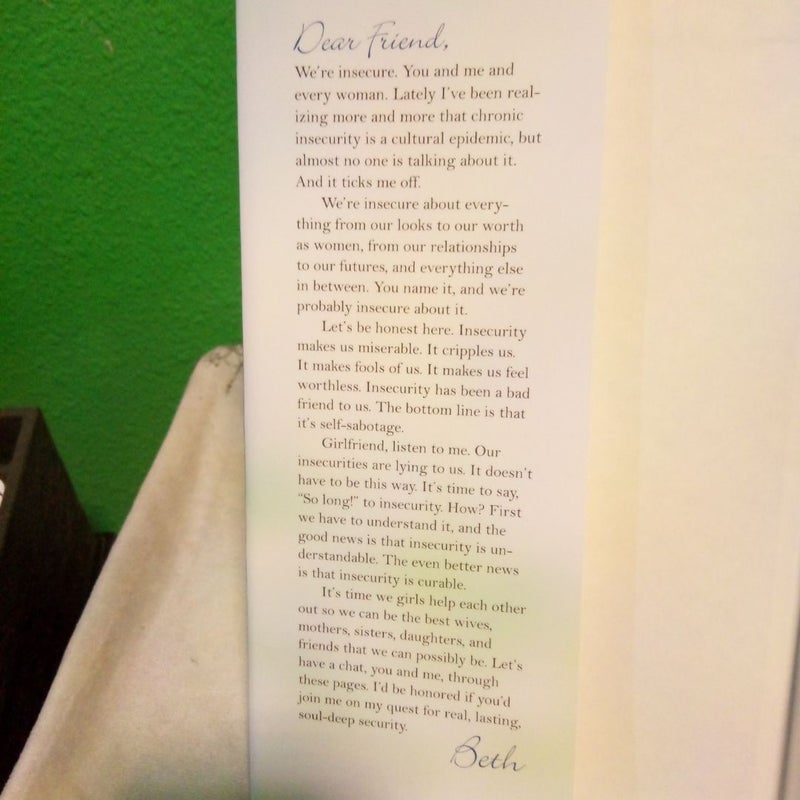 Dear Friend,
We're insecure. You and me and
every woman. Lately I've been real-
izing more and more that chronic
insecurity is a cultural epidemic, but
almost no one is talking about it.
And it ticks me off.
We're insecure about every-
thing from our looks to our worth
as women, from our relationships
to our futures, and everything else
in between. You name it, and we're
probably insecure about it.
Let's be honest here. Insecurity
makes us miserable. It cripples us.
It makes fools of us. It makes us feel
worthless. Insecurity has been a bad
friend to us. The bottom line is that
it's self-sabotage.
Girlfriend, listen to me. Our
insecurities are lying to us. It doesn't
have to be this way. It's time to say,
"So long!" to insecurity. How? First
we have to understand it, and the
good news is that insecurity is un-
derstandable. The even better news
is that insecurity is curable.
It's time we girls help each other
out so we can be the best wives,
mothers, sisters, daughters, and
friends that we can possibly be. Let's
have a chat, you and me, through
these pages. I'd be honored if you'd
join me on my quest for real, lasting,
soul-deep security.
Beth